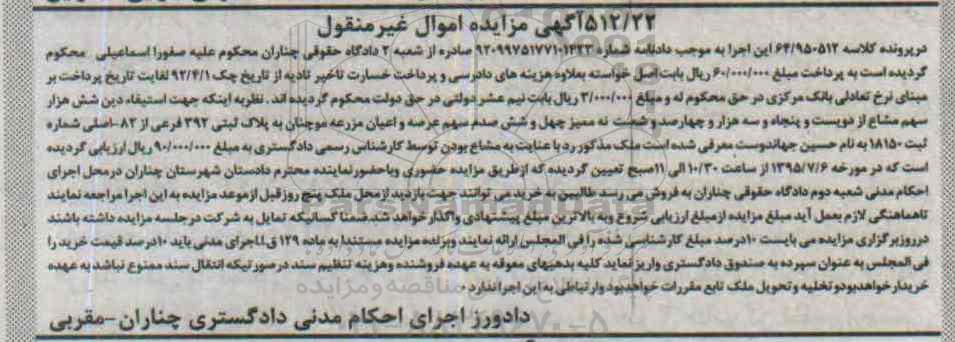 ۵۱۲/۲۲آگهی مزایده اموال غیرمنقول
درپرونده کلاسه ۶۴/۹۵۰۵۱۲ این اجرا به موجب دادنامه شماره ۹۲۰۹۹۷۵۱۷۷۱۰۱۴۲۳ صادره از شعبه ۲ دادگاه حقوقی چناران محکوم علیه صفورا اسماعیلی محکوم
گردیده است به پرداخت مبلغ ۶۰/۰۰۰/۰۰۰ ریال بابت اصل خواسته بعلاوه هزینه های دادرسی و پرداخت خسارت تاخیر تادیه از تاریخ چک ۹۲/۴/۱ لغایت تاریخ پرداخت بر
مبنای نرخ تعادلی بانک مرکزی در حق محکوم له و مبلغ ۳/۰۰۰/۰۰۰ ریال بابت نیم عشر دولتی در حق دولت محکوم گردیده اند . نظر به اینکه جهت استیفاء دین شش هزار
سهم مشاع از دویست و پنجاه و سه هزار و چهارصد و شصت نه ممیز چهل و شش صدم سهم عرصه و اعیان مزرعه موچنان به پلاک ثبتی ۳۹۲ فرعی از ۸۲-اصلی شماره
ثبت ۱۸۱۵۰ به نام حسین جهاندوست معرفی شده است ملک مذکور رد با عنایت به مشاع بودن توسط کارشناس رسمی دادگستری به مبلغ ۹۰/۰۰۰/۰۰۰ ریال ارزیابی گردیده
است که در مورخه ۱۳۹۵/۷/۶ از ساعت ۱۰/۳۰ الی ۱۱صبح تعیین گردیده که ازطریق مزایده حضوری وباحضورنماینده محترم دادستان شهرستان چناران درمحل اجرای
احکام مدنی شعبه دوم دادگاه حقوقی چناران به فروش می رسد طالبین به خرید می توانند جهت بازدید ازمحل ملک پنج روزقبل ازموعد مزایده به این اجرا مراجعه نمایند
تاهماهنگی لازم بعمل آید مبلغ مزایده ازمبلغ ارزیابی شروع وبه بالاترین مبلغ پیشنهادی واگذار خواهد شد.ضمنا کسانیکه تمایل به شرکت درجلسه مزایده داشته باشند
درروزبرگزاری مزایده می بایست ۱۰درصد مبلغ کارشناسی شده را فی المجلس ارائه نمایند وبرنده مزایده مستندا به ماده ۱۲۹ ق.ا.اجرای مدنی باید ۱۰درصد قیمت خرید را
فی المجلس به عنوان سپرده به صندوق دادگستری واریز نماید کلیه بدهیهای معوقه به عهده فروشنده وهزینه تنظیم سند در صورتیکه انتقال سند ممنوع نباشد به عهده
خریدار خواهدبودوتخلیه وتحویل ملک تابع مقررات خواهدبود وارتباطی به این اجرا ندارد .
دادورز اجرای احکام مدنی دادگستری چناران-مقربی